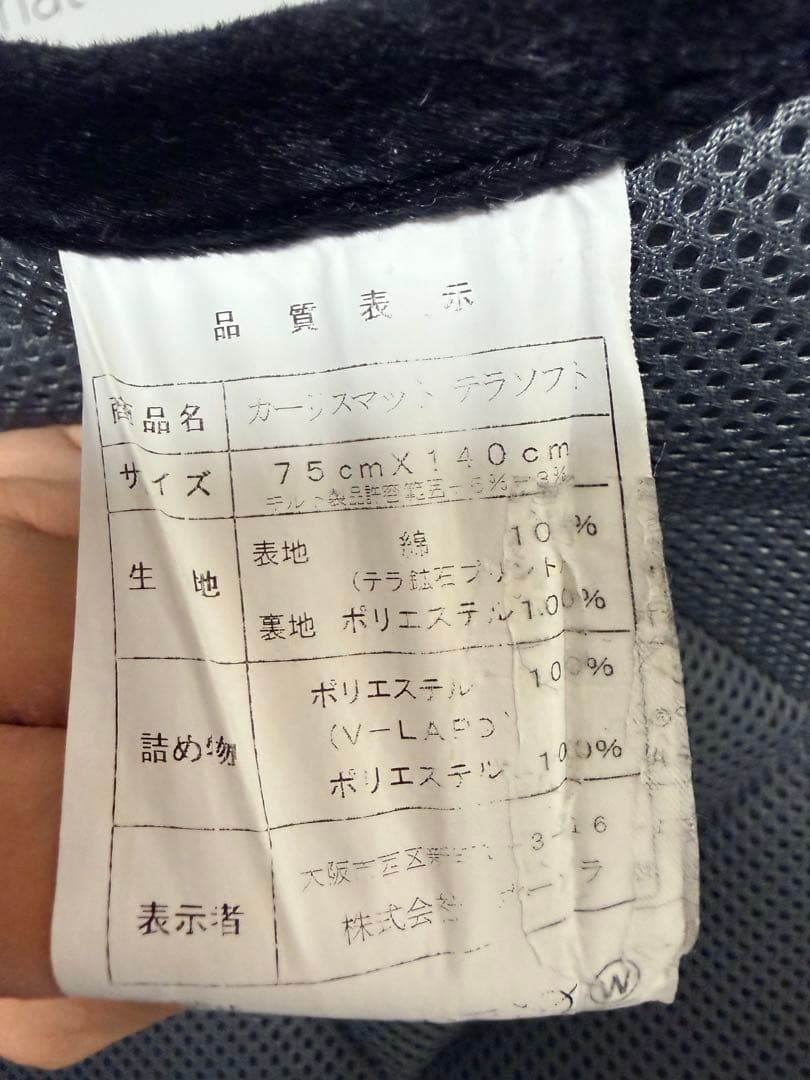 品質表示
商品名 カージスマット テラソフト
サイズ 75cm×140cm
製品許容範囲
生地 表地 綿 100%
(テラ鉱石プリント)
裏地 ポリエステル 100%
詰め物 ポリエステル 100%
(V-LAP)
ポリエステル 100%
表示者 大阪市西区
株式会社